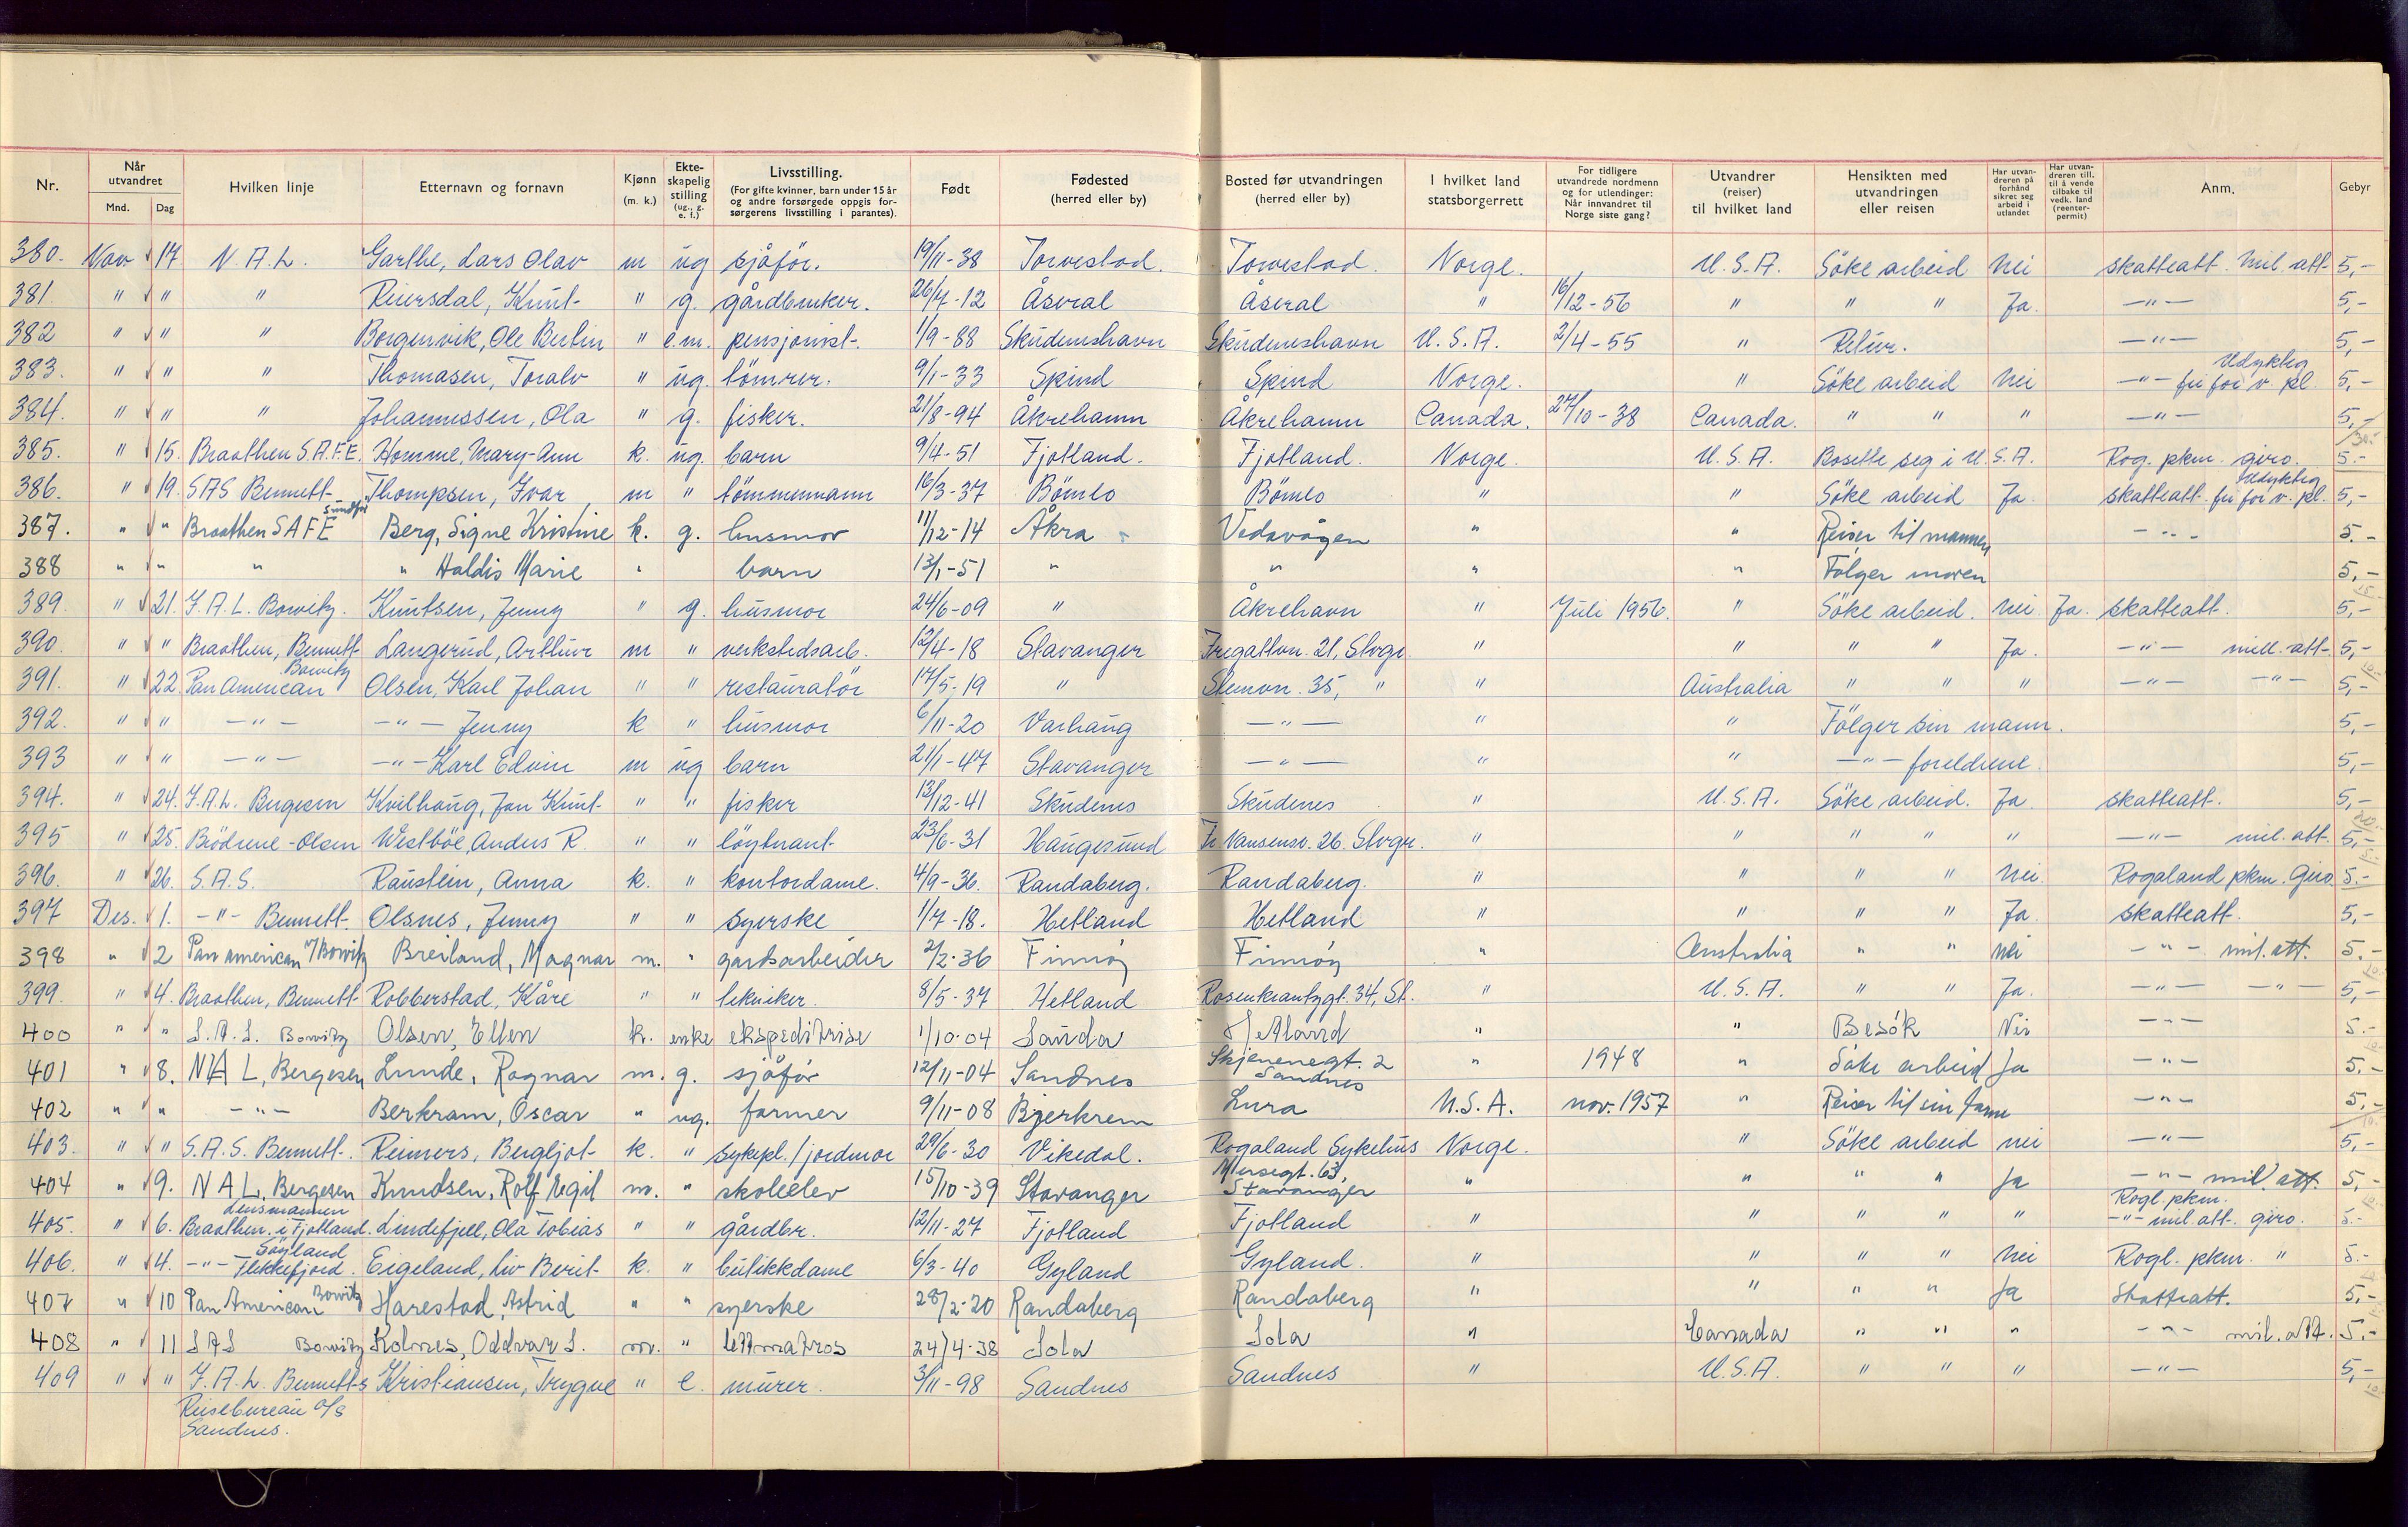 Nr. Når utvandret Mnd. Dag Hvilken linje Etternavn og fornavn Kjønn (m. k.) Ekteskapelig stilling (ug., g. e. f.) Livsstilling. (For gifte kvinner, barn under 15 år og andre forsørgede oppgis forsørgerens livsstilling i parantes). Født Fødested (herred eller by) Bosted før utvandringen (herred eller by) I hvilket land statsborgerrett For tidligere utvandrede nordmenn og for utlendinger: Når innvandret til Norge siste gang? Utvandrer (reiser) til hvilket land Hensikten med utvandringen eller reisen Har utvandreren på forhånd sikret seg arbeid i utlandet Har utvandreren till. til å vende tilbake til vedk. land (reenterpermit) Anm. Gebyr
380. Nov 17 N.A.L. Garthe, Lars Olav m ug sjåfør. 19/11-38 Torvestad. Torvestad. Norge. U.S.A. Söke arbeid Nei skatteatt. Mil. att. 5,-
381. " " " Reiersdal, Knut " g. gårdbruker. 26/7-12 Åseral Åseral " 16/12-56 " " " Ja. -"- 5,-
382 " " " Borgenvik, Ole Bertin " e.m. pensjonist. 1/9-88 Skudeneshavn Skudeneshavn U.S.A. 2/4-55 " Retur. -"- 5,-
383. " " " Thomasen, Toralv " ug. tömrer. 9/1-33 Spind Spind Norge. " Söke arbeid Nei -"- fri for v. pl. Utdyktig 5,-
384. " " " Johannessen, Ola " g. fisker. 21/8-94 Åkrehamn Åkrehamn Canada. 27/10-38 Canada. " " " -"- 5,-
385. " 15. Braathen S.A.F.E. Homme, Mary-Ann k. ug. barn 9/4-51 Fjotland. Fjotland. Norge. U.S.A. Bosette seg i U.S.A. Rog. pkm. giro. 5.-
386. " 19. SAS Bennett Thompsen, Ivar m " tömmermann 16/3-37 Bömlo Bömlo " " Söke arbeid Ja. skatteatt. fri for v. pl. Utdyktig 5,-
387. " " Braathen SAFE Sundfør Berg, Signe Kristine k. g. husmor 11/12-14 Åkra Vedavågen " " Reiser til mannen -"- 5.-
388 " " " " Haldis Marie " barn 13/1-51 " " " " Følger moren 5,-
389. " 21. F.A.L. Bowitz. Knutsen, Jenny " g. husmor 24/6-09 " Åkrehavn " Juli 1956. " Söke arbeid. Nei Ja. skatteatt. 5,-
390. " " Braathen, Bennett Langerud, Arthur m " verkstedsarb. 12/4-18 Stavanger Fregattvn. 21, Stvgr. " " " " Ja. -"- mill. att. 5,-
391. " 22. Pan American Bowitz Olsen, Karl Johan " " restauratör 17/5-19 " Stemvn. 35, " " Australia " " " -"- -"- 5,-
392. " " -"- -"- Jenny k " husmor 6/11-20 Varhaug -"- " " Fölger sin mann. 5,-
393 " " -"- -"- Karl Edvin m ug barn 21/1-47 Stavanger -"- " " -"- foreldrene. 5,-
394. " 24. F.A.L. Bergesen Kvilhaug, Jan Knut " " fisker 13/12-41 Skudenes Skudenes " U.S.A. Söke arbeid. Ja. skatteatt. 5,-
395 " 25. Brödrene Olsen Westböe, Anders R. " " löytnant 23/6-31 Haugesund Fr. Nansensv. 26. Stvgr. " " " " " -"- mil. att. 5,-
396. " 26. S.A.S. Raustein, Anna k. " kontordame. 4/9-36. Randaberg. Randaberg. " " " " Nei. Rogaland pkm. Giro 5.-
397 Des. 1. -"- Bennett. Olsnes, Jenny " " syerske 1/7-18. Hetland Hetland " " " " Ja skatteatt. 5,-
398 " 2 Pan american m/Bowitz Breiland, Magnar m. " gardsarbeider 2/2-36 Finnöy Finnöy " Australia " " Nei -"- mil. att. 5.-
399. " 4. Braathen, Bennett Robberstad, Kåre " " tekniker. 8/5-37 Hetland Rosenkrantzgt. 34, St. " U.S.A. " " Ja. -"- -"- 5,-
400 " " S.A.S. Bowitz Olsen, Ellen k. enke ekspeditrise 1/10-04 Sauda Hetland " " Besök Nei -"- 5.-
401 " 8. NAL, Bergesen Lunde, Ragnar m. g. sjåför 12/11-04 Sandnes Skjenenegt. 2 Sandnes " 1948 " Söke arbeid Ja -"- 5.-
402 " " -"- Berkram, Oscar " ug. farmer 9/11-08 Bjerkrem Lura U.S.A. nov. 1957 " Reiser til sin farm -"- 5.-
403. " " S.A.S. Bennett. Reimers, Bergljot k. " sykepl./jordmor 29/6-30 Vikedal. Rogaland Sykehus Norge. " Söke arbeid nei -"- 5,-
404 " 9. NAL, Bergesen Knudsen, Rolf Egil m. " skoleelev 15/10-39 Stavanger Stavanger " " " " Ja -"- mil. att. 5,-
405. " 6. Braathen. Lensmannen i Fjotland. Lindefjell, Ola Tobias " " gårdbr. 12/11-27 Fjotland Fjotland " " " " " Rogl. pkm. -"- mil. att. giro. 5.-
406. " 4. -"- Flekkefjord. Eigeland, Liv Berit k. " butikkdame 6/3-40 Gyland Gyland. " " " " Nei Rogl. pkm. " 5.-
407 " 10 Pan American Bowitz Harestad, Astrid " " syerske 28/2-20 Randaberg Randaberg " " " " Ja Skatteatt. 5,-
408 " 11 SAS Bowitz Kolnes, Oddvar S. m. " lettmatros 24/4-38 Sola Sola " Canada " " " -"- mil. att. 5.-
409 " " F.A.L. Bennetts Kristiansen, Trygve " e. murer. 3/11-98 Sandnes Sandnes " U.S.A. " " " -"- 5,-
Reisebureau A/S
Sandnes.